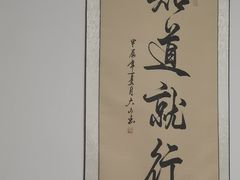 知道就行
甲辰年夏月六山書